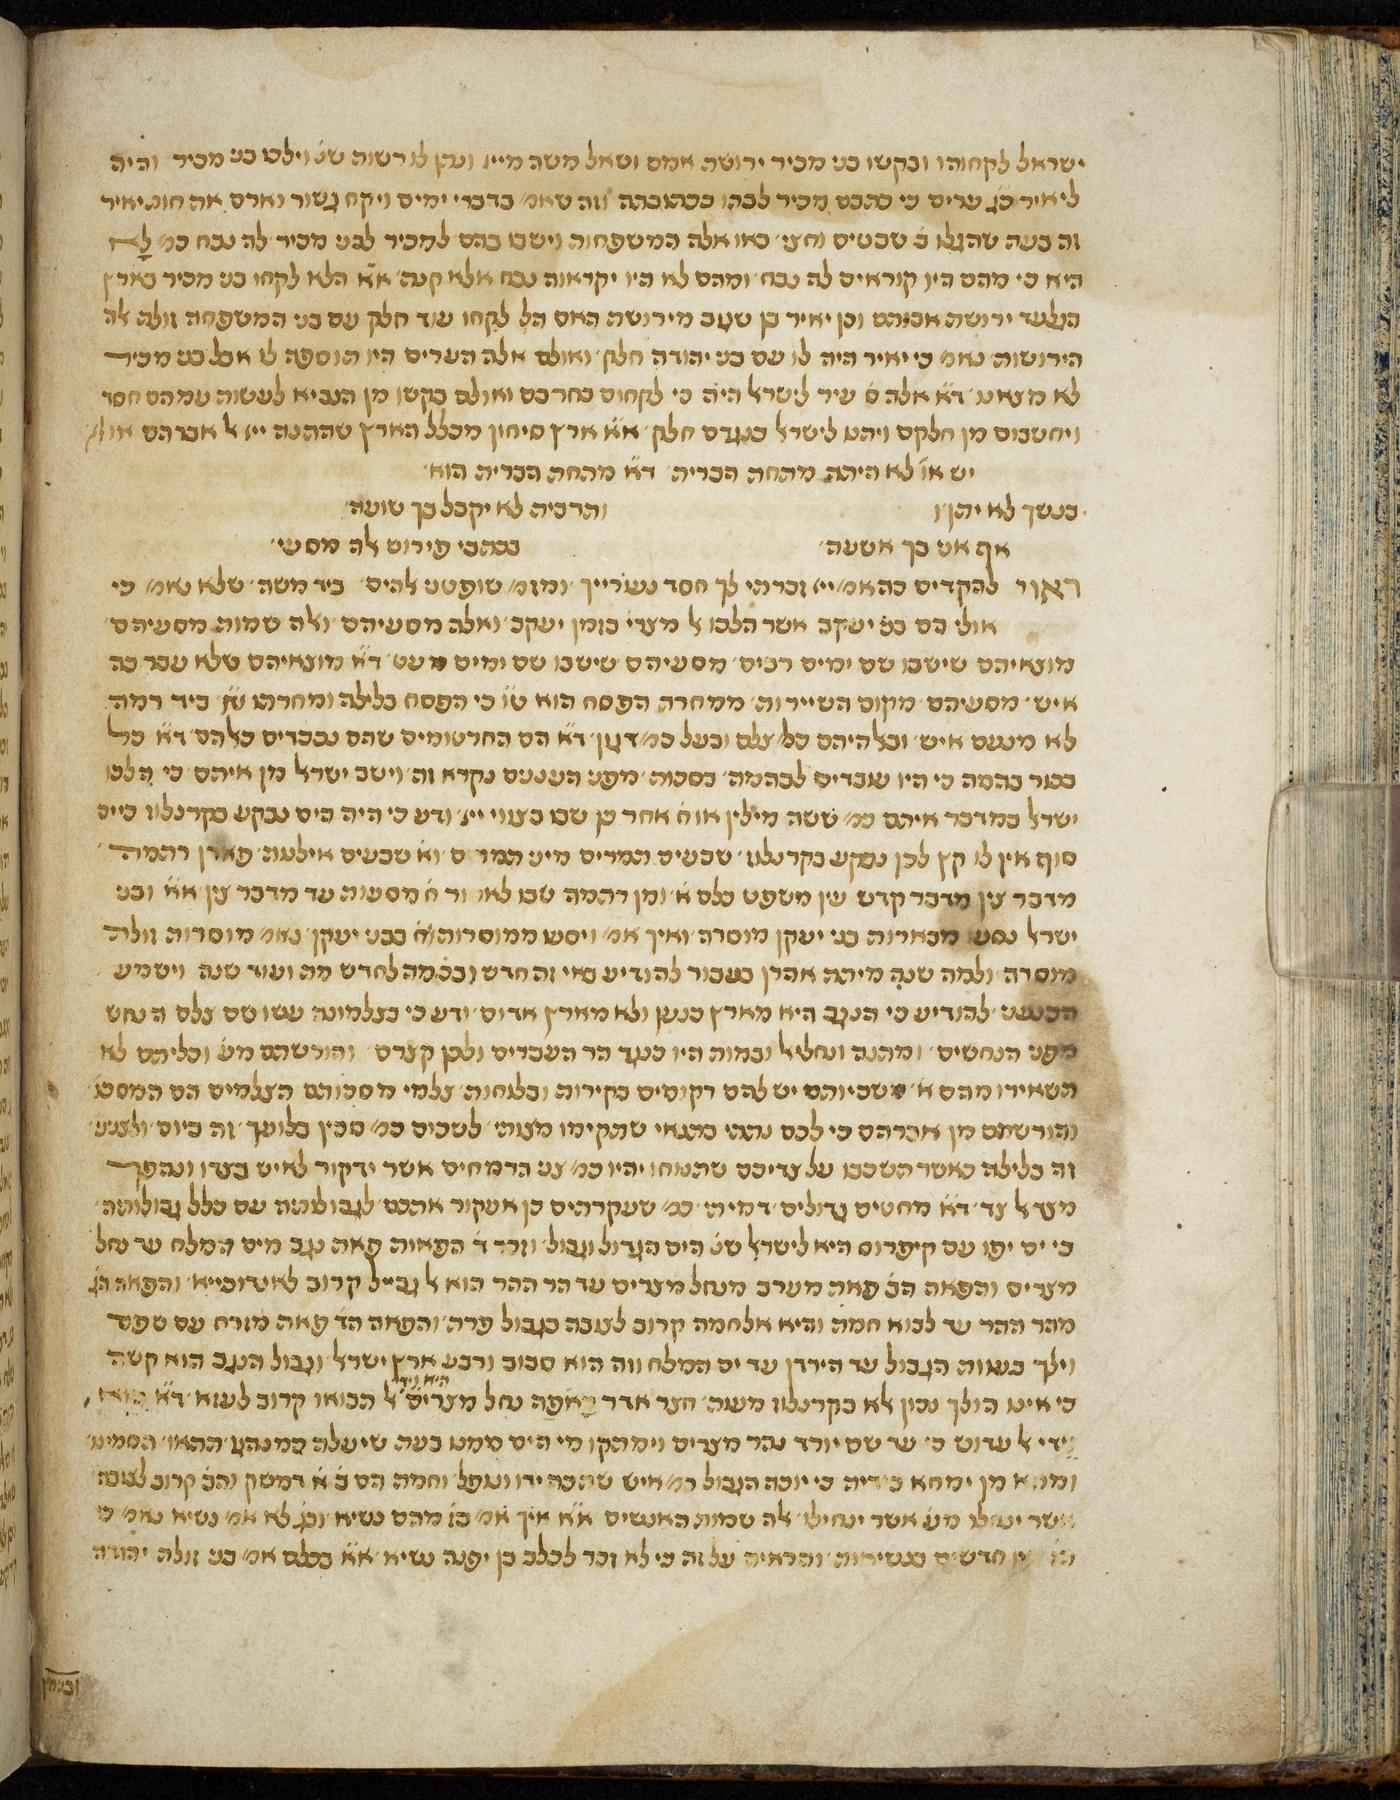 ישראל לקחוהו ובקשו בני מכיר ירושת אמם ושאל משה מייי ונתן לו רשות שנ׳ וילכו בני מכיר והיה
ליאיר כ׳ג׳ ערים כי סהכם מכיר לבתו בכתובתה וזה שאמ׳ בדברי ימים ויקח גשור וארם את חות יאיר
זה בעת שהגלו ב׳ שבטים וחצי באו אלה המשפחות וישבו בהם למכיר לבני מכיר לה נבח כמ׳ לָהּ
היא כי מהם היו קוראים לה נבח ומהם לא היו יקראוה נבח אלא קנת א״א הלא לקחו בני מכיר בארץ
הגלעד ירושת אביהם וכן יאיר בן שגוב מירושת האם הל לקחו עוד חלק עם בני המשפחה זולת אלה
הירושות נאמ׳ כי יאיר היה לו עם בני יהודה חלק ואולם אלה הערים היו תוספת לו אבל בני מכיר
לא מצאנו ד״א אלה ס׳ עיר לישראל היה כי לקחום בחרבם ואולם בקשו מן הנביא לעשות עמהם חסד
ויחשבום מן חלקם ויהיו לישראל כנגדם חלק א״א ארץ סיחון מכלל הארץ שההנה ייי לאברהם או לא
יש או לא היתה מתחת הברית ד״א מתחת הברית הוא
בנשך לא יתן ו והרבית לא יקבל בך שועה
אף אני בך אשעה בכתבי פירוש אלה מסעי
ראוי להקדים כה אמ׳ ייי זכרתי לך חסד נעורייך ומזמ׳ שופטני להים ביד משה שלא נאמ׳ כי
אולי הם בני יעקב אשר הלכו למצרי׳ בזמן יעקב ואלה מסעיהם ואלה שמות מסעיהם
מוצאיהם שישבו שם ימים רבים מסעיהם שישבו שם ימים מעט ד״א מוצאיהם שלא עבר בה
איש מסעיהם מקום השיירות ממחרת הפסח הוא ט״ו כי הפסח בלילה ומחרתו ט״ו ביד רמה
לא מנעם איש ובאלהיהם כל צלם ובעל כמ׳ דגון ד״א הם החרטומים שהם נכבדים כאלהים ד״א כל
בכור בהמה כי היו עובדים לבהמה בסכות מפני העננים נקרא זה וישב ישראל מן איתם כי הלכו
ישראל במדבר איתם כמ׳ ששה מילין או ח׳ אחר כן שבו בצווי ייי ודע כי היה הים נבקע בקרנלוו כיים
סוף אין לו קץ לכן נבקע בקרנלוו שבעים תמרים מיני תמרים וא׳ שבעים אילנות פארן רתמה
מדבר צין מדבר קדש עין משפט כלם א׳ ומן רתמה שבו לאחור ח׳ מסעות עד מדבר צין א״א ובני
ישראל נסעו מבארות בני יעקן מוסרה ואיך אמ׳ ויסעו ממוסרות ויח׳ בבני יעקן נאמ׳ מוסרות זולת
מוסרה ולמה שנה מיתת אהרן בעבור להודיע באי זה חדש ובכמה לחדש מת ועוד שנה וישמע
הכנעני להודיע כי הנגב היא מארץ כנען ולא מארץ אדום ודע כי בצלמונה עשו שם צלם הנחש
מפני הנחשים ומתנה ונחליאל ובמות היו כנגד הר העברים ולכן קצרם והורשתם מעו׳ וכליתם לא
תשאירו מהם א׳ משכיותם יש להם רקומים בקירות ובלוחות צלמי מסכותם הצלמים הם המסכו׳
והורשתם מן אברהם כי לכם נתתי בתנאי שתקימו מצותי לשכים כמ׳ סכין בלועך זה ביום ולצנינ׳
זה בלילה כאשר תשכבו על צדיכם שתנוחו יהיו כמ׳ צני הרמחים אשר ידקור לאיש בצדו ונהפך
מצד אל צד ד״א מחטים גדולים דמיתי כמ׳ שעקרתים כן אעקור אתכם לגבולותיה עם כלל גבולותיה
כי ים יפו עם קיפרוס היא לישראל שנ׳ הים הגדול וגבול וזכר ד׳ הפאות פאת נגב מים המלח עד נחל
מצרים והפאה הב׳ פאת מערב מנחל מצרים עד הר ההר הוא לגבייל קרוב לאנדוכייא והפאה הג׳
מהר ההר עד לבוא חמת והיא אלחמת קרוב לצובה כגבול פרת והפאה הד׳ פאת מזרח עם שפט
וילך בשוות הגבול עד הירדן עד ים המלח וזה הוא סבוב ורבע ארץ ישראל וגבול הנגב הוא קשה
כי אינו הולך נכון לא בקרנלוו מעוה חצר אדר רָאפָה נחל מצרים היא ויד׳ אל הבואו קרוב לעזא ד״א
ידי אל ערוש כי עד שם יורד נהר מצרים וימתקו מי הים ממנו בעת שיעלה כמנהג התאו הסמינ׳
ומחא מן ימחא כי יהיה כי יוכה הגבול כמ׳ איש שהכה ידו וטפל וחמת הם ב׳ א׳ דמשק והב׳ קרוב לצובה
אשר ינחלו מעו׳ אשר ינחילו אלה שמות האנשים א״א איך אמ׳ כי מהם נשיא וכל לא אמ׳ נשיא נאמ׳ כי
חדשים בנשירות והראיה על זה כי לא זכר לכלב בן יפנה נשיא א״א בכלם אמ׳ בני זולת יהודה
ובנימין